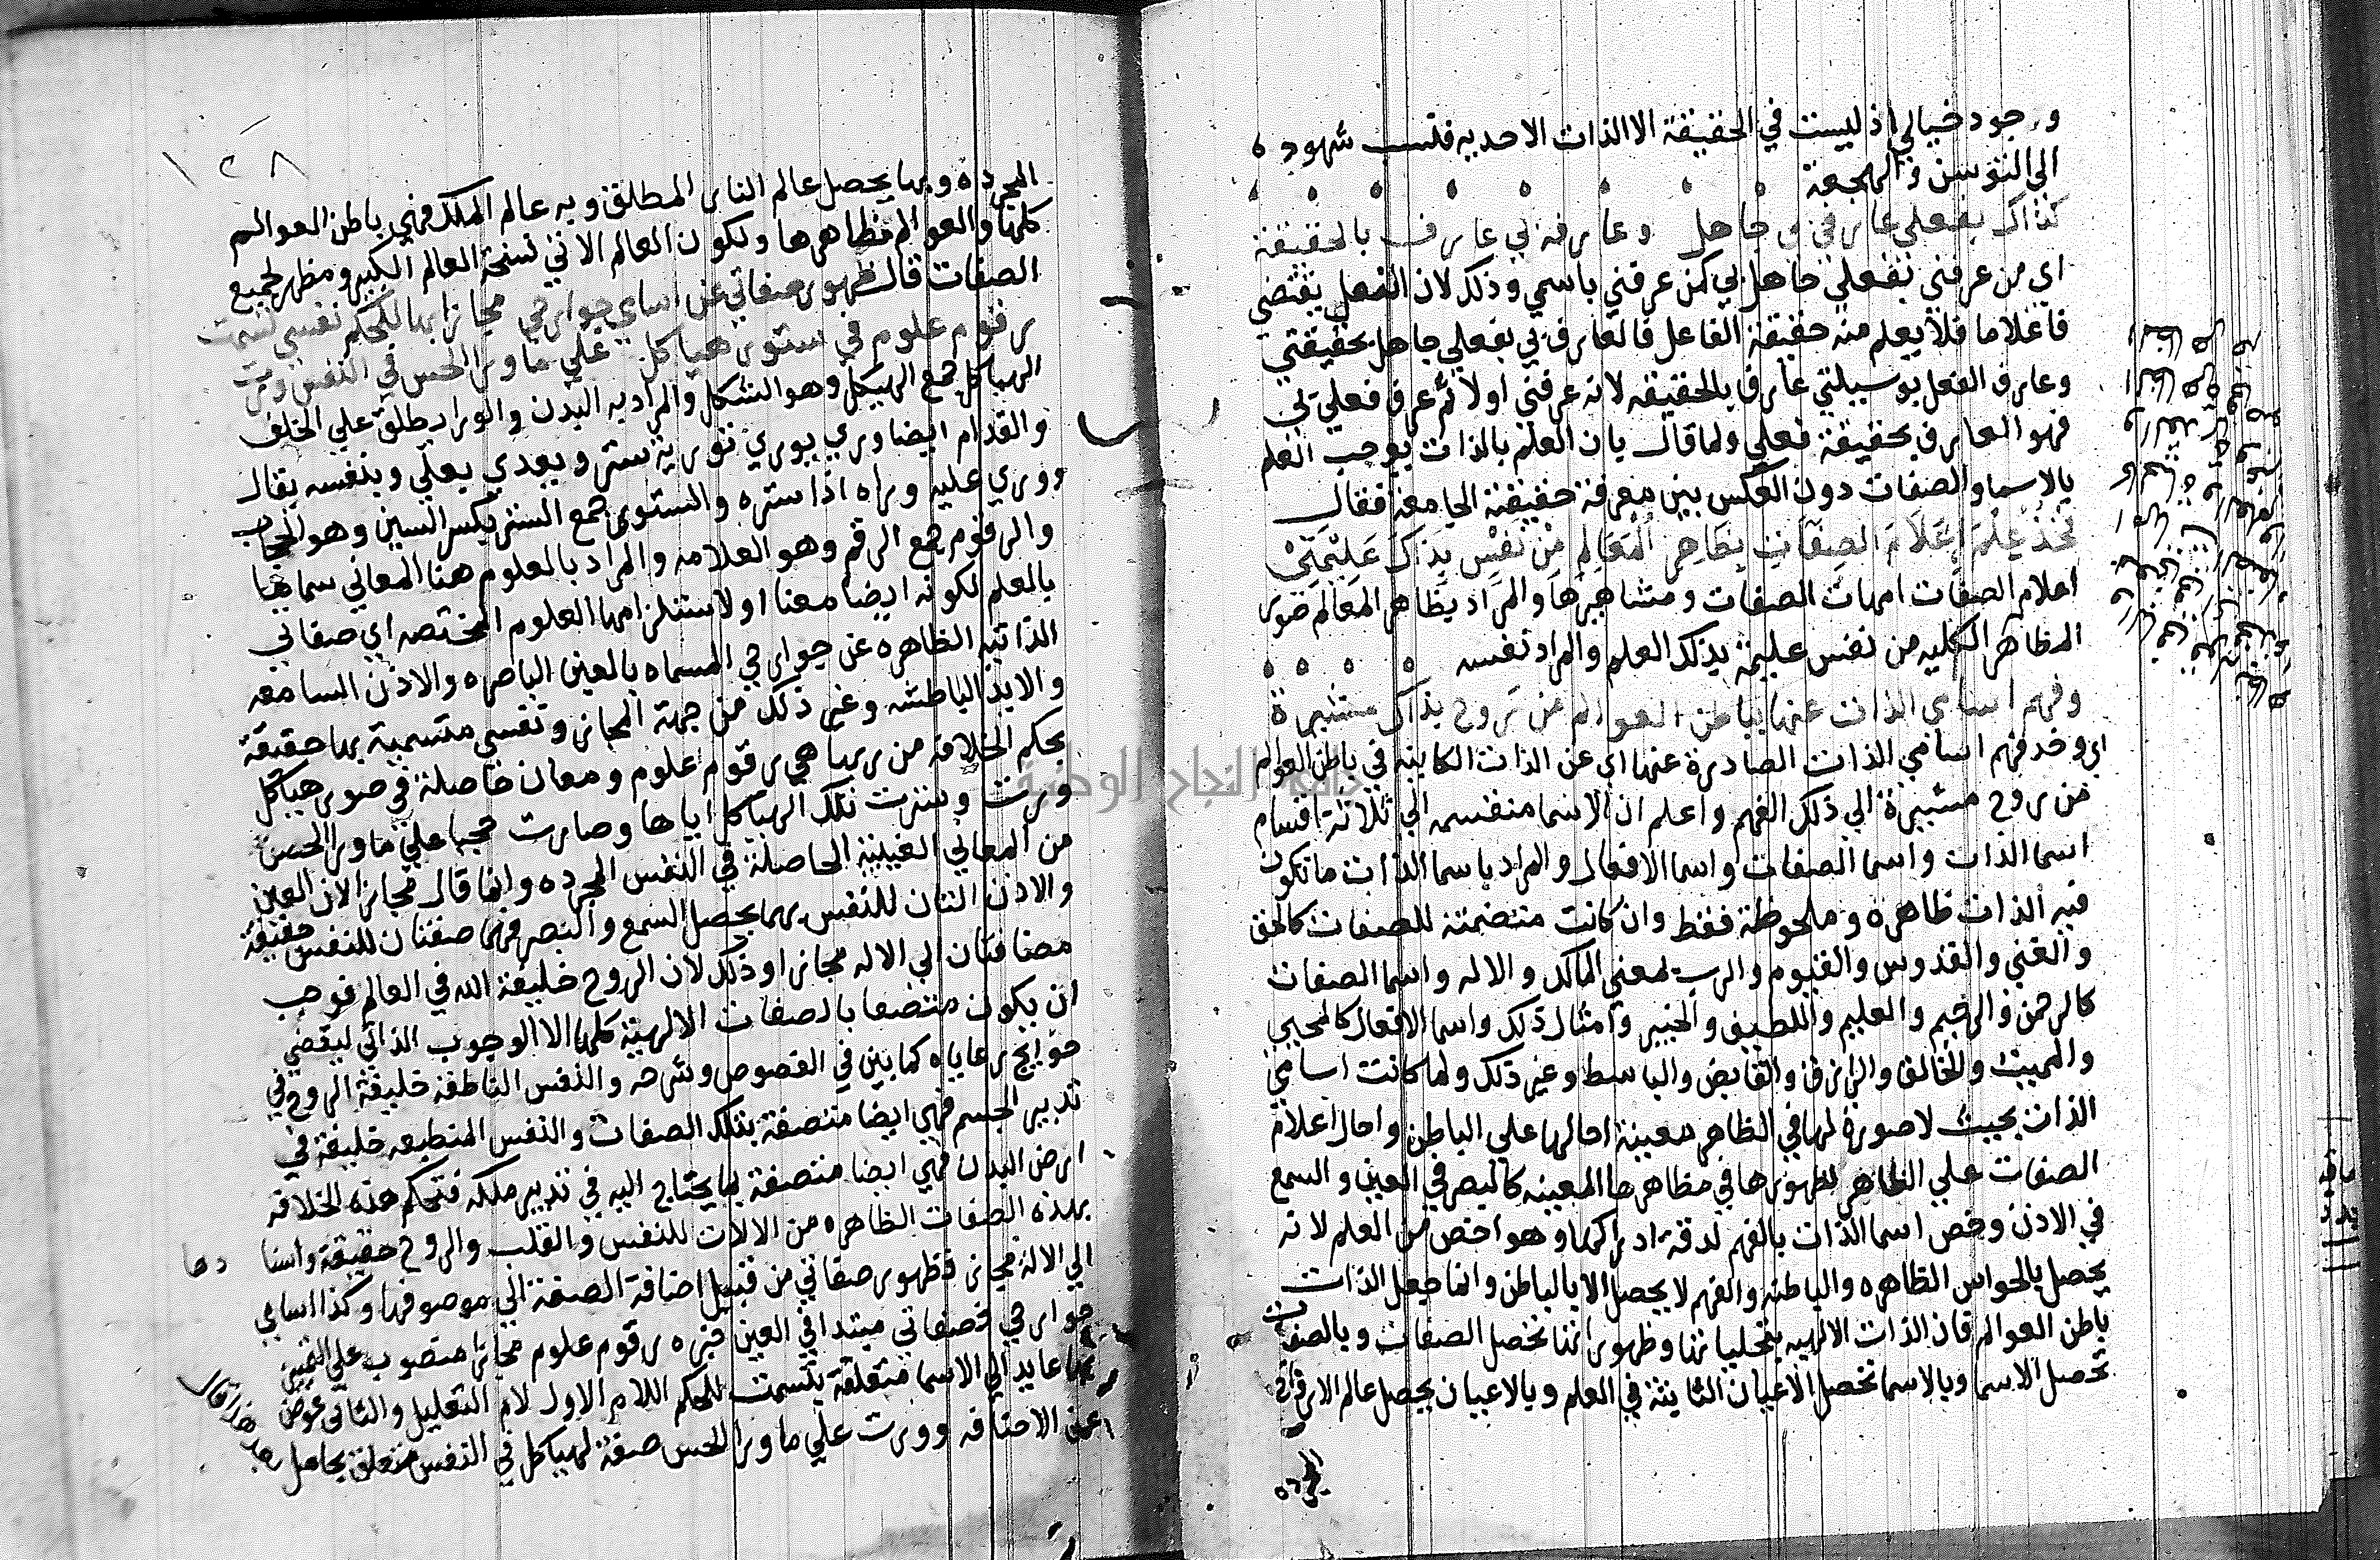 وجود خيالي اذ ليست في الحقيقة الا الذات الاحديه فتب شهود
الى التوسن والهجعة
كذاك بفعلي عارفي بي جاهل وعارفه بي عارف بالحقيقة
اي من عرفني بفعلي جاهل بي كمن عرفني باسمي وذلك لان الفعل يقتضي
فاعلا ما فلا يعلم منه حقيقة الفاعل فالعارف بي بفعلي جاهل بحقيقتي
وعارف الفعل بوسيلتي عارف بالحقيقه لانه عرفني اولا ثم عرف فعلي بي
فهو العارف بحقيقة فعلي ولما قال بان العلم بالذات يوجب العلم
بالاسما والصفات دون العكس بين معرفة حقيقته الجامعة فقال
فخذ علم اعلام الصفات بظاهر المعالم من نفس بذاك عليمة
اعلام الصفات امهات الصفات ومشاهيرها والمراد بظاهر المعالم صور
المظاهر الكليه من نفس عليمة بذلك العلم والمراد نفسه
وفهم اسامي الذات عنها بباطن العوالم من روح بذاك مشيرة
اي وخذ فهم اسامي الذات الصادرة عنها اي عن الذات الكاينة في باطن العوالم
من روح مشيرة الي ذلك الفهم واعلم ان الاسما منقسمه الي ثلاثة اقسام
اسما الذات واسما الصفات واسما الافعال والمراد باسما الذات ما تكون
فيه الذات ظاهرة وملحوظة فقط وان كانت متضمنة للصفات كالحق
والغني والقدوس والقيوم والرب بمعني المالك والاله واسما الصفات
كالرحمن والرحيم والعليم واللطيف والخبير وامثال ذلك واسما الافعال كالمحيي
والمميت والخالق والرازق والقابض والباسط وغير ذلك ولما كانت اسامي
الذات بحيث لا صورة لها في الظاهر معينة احالها علي الباطن واحال اعلام
الصفات علي الظاهر لظهورها في مظاهرها المعينه كالبصر في العين والسمع
في الاذن وخص اسما الذات بالفهم لدقة ادراكها وهو اخص من العلم لانه
يحصل بالحواس الظاهره والباطنه والفهم لا يحصل الا بالباطن وانما جعل الذات
باطن العوالم فان الذات الالهيه بتجلياتها وظهوراتها تحصل الصفات وبالصفات
تحصل الاسما وبالاسما تحصل الاعيان الثابتة في العلم وبالاعيان يحصل عالم الارواح
المجرده
١٢٨
المجرده وبها يحصل عالم المثال المطلق وبه عالم الملك فهي باطن العوالم
كلها والعوالم مظاهرها ولكون العالم الانساني نسخة العالم الكبير ومظهر لجميع
الصفات قال ظهور صفاتي عن اسامي جوارحي مجازا بها للحكم نفسي تسمت
رقوم علوم في ستور هياكل علي ما ورا الحس في النفس ورت
الهياكل جمع الهيكل وهو الشكل والمراد به البدن والورا يطلق علي الخلف
والقدام ايضا وري يوري تورية ستر ويعدي بعلي وبنفسه يقال
ووري عليه وراه اذا ستره والستور جمع الستر بكسر السين وهو الحجاب
والرقوم جمع الرقم وهو العلامه والمراد بالعلوم هنا المعاني سماها
بالعلم لكونه ايضا معنا او لاستلزامها العلوم المختصه اي صفاتي
الذاتيه الظاهره عن جوارحي المسماه بالعين الباصره والاذن السامعه
والايد الباطشه وغير ذلك من جهة المجاز ونفسي متسمية بها حقيقة
بحكم الخلافة من ربها هي رقوم علوم ومعان حاصلة في صور هياكل
ورت وسترت تلك الهياكل اياها وصارت حجبا علي ما ورا الحس
من المعاني الغيبية الحاصلة في النفس المجرده وانما قال مجازا لان العين
والاذن التان للنفس بهما يحصل السمع والبصر فهما صفتان للنفس حقيقة
مضافتان الي الاله مجازا وذلك لان الروح خليفة الله في العالم فوجب
ان يكون متصفا بالصفات الالهية كلها الا الوجوب الذاتي ليقضي
حوايج رعاياه كما بين في الفصوص وشرحه والنفس الناطقه خليفة الروح في
تدبير الجسم فهي ايضا متصفة بتلك الصفات والنفس المنطبعه خليفة في
ارض البدن فهي ايضا متصفة بما يحتاج اليه في تدبير ملكه فتحكم هذه الخلافه
بهذه الصفات الظاهره من الالات للنفس والقلب والروح حقيقة واسنادها
الي الاله مجاز فظهور صفاتي من قبيل اضافة الصفة الي موصوفها وكذا اسامي
جوارحي فصفاتي مبتدا في العين خبره رقوم علوم مجازا منصوب علي التمييز
بها عايد الي الاسما متعلقة بتسمت للحكم اللام الاول لام التعليل والثاني عوض
عن الاضافه وورت علي ما ورا الحس صفة لهياكل في النفس متعلق بحاصل